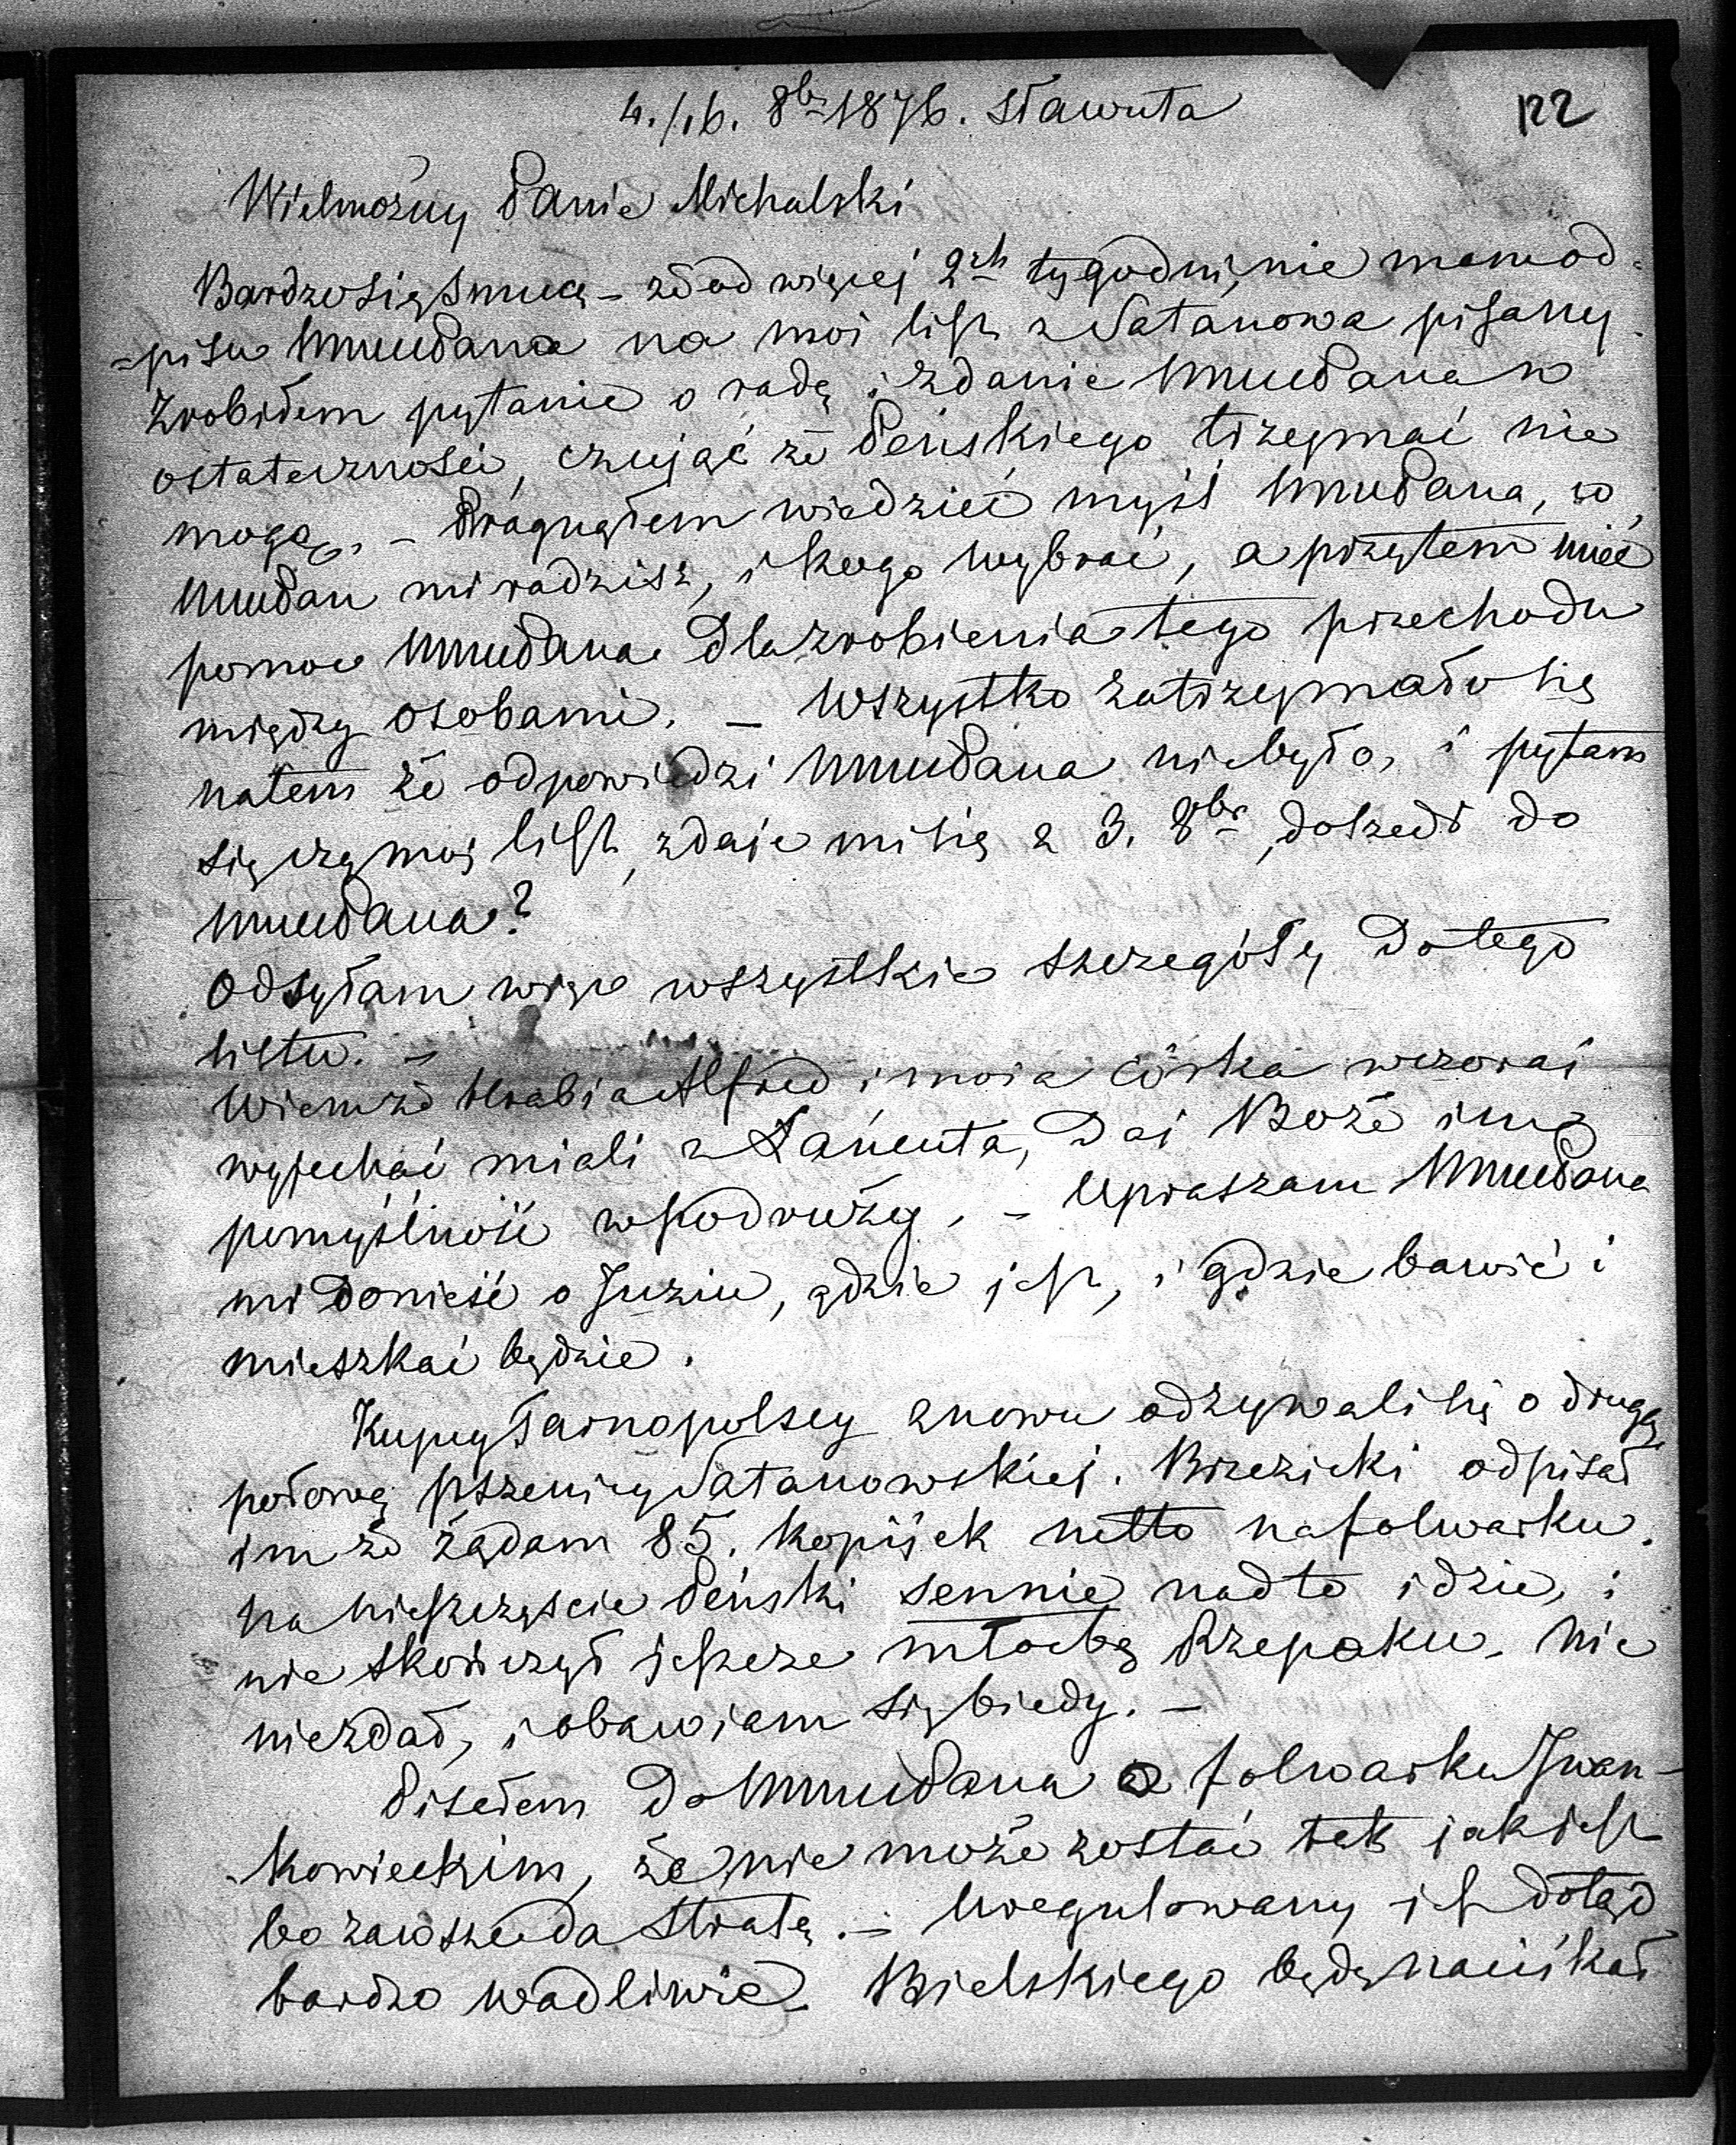 4./16. 8br 1876. Sławuta
122
Wielmożny Panie Michalski
Bardzo się smucę – że od więcej 2ch tygodni, nie mam od=
=pisu WmuPana na moi list z Satanowa pisany.
Zrobiłem pytanie o radę i zdanie WmuPana w
ostateczności, czując że Peńskiego trzymać nie
mogę. – Pragnąłem wiedzieć myśl WmuPana, co
WmuPan mi radzisz, i kogo wybrać, a przytem mieć
pomoc WmuPana dla zrobienia tego przechodu
między osobami. – Wszystko zatrzymało się
na tem że odpowiedzi WmuPana nie było, i pytam
się czy moj list, zdaje mi się z 3. 8br, doszedł do
WmuPana?
Odsyłam więc wszystkie szczegóły do tego
listu. –
Wiem że Hrabia Alfred i moia córka wczorai
wyjechać mieli z Łańcuta, Dai Boże im
pomyślność w podróży. – Upraszam WmuPana
mi donieść o Juziu, gdzie jest, i gdzie bawić i
mieszkać będzie.
Kupcy Tarnopolscy znowu odzywali się o drugą
połowę pszenicy Satanowskiej. Brzezicki odpisał
im że żądam 85. kopijek netto na folwarku.
Na nieszczęście Peński sennie nadto idzie, i
nie skończył jeszcze młocbę Rzepaku. Nic
nie zdał, i obawiam się biedy. –
Pisałem do WmuPana o folwarku Iwan-
kowieckim, że nie może zostać tak jak jest
bo zawsze da stratę. – Uregulowany jest dotąd
bardzo wadliwie. Bielskiego będę naciskał